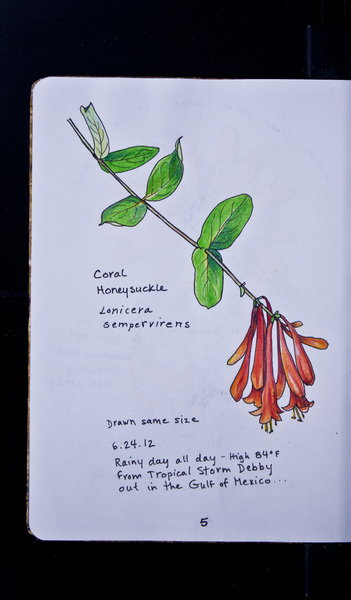 Coral
Honeysuckle
Lonicera
sempervirens
Drawn same size
6.24.12
Rainy day all day - High 84°F
from Tropical Storm Debby
out in the Gulf of Mexico...
5